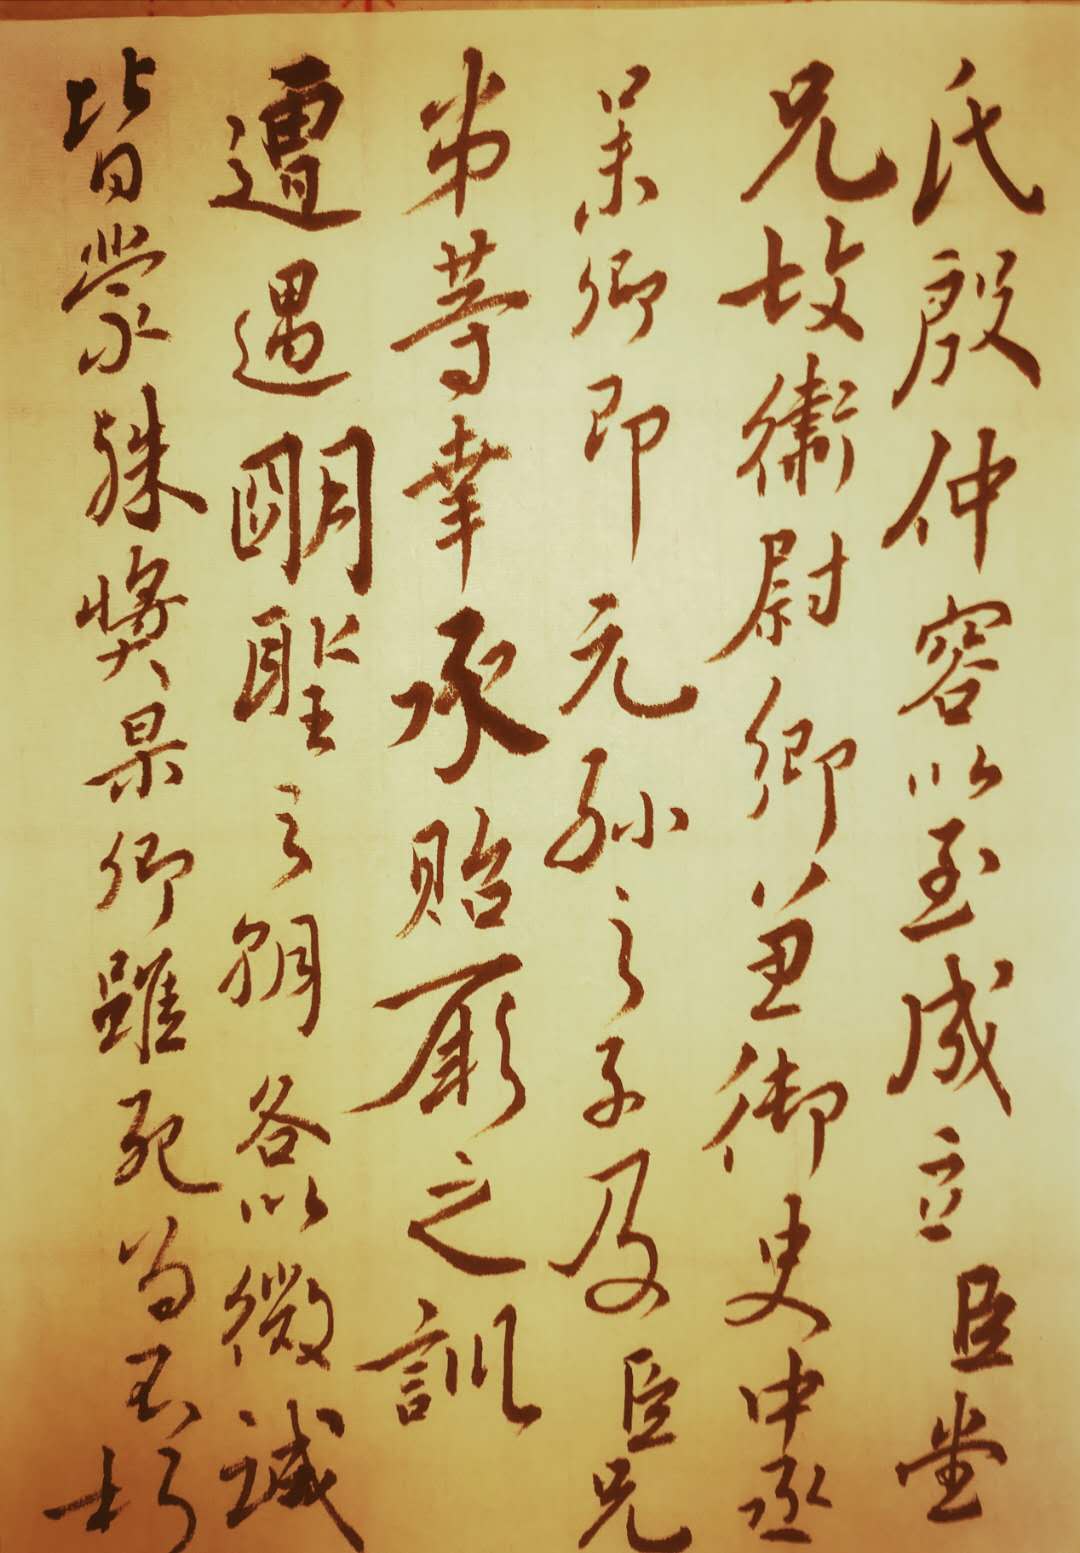 氏殷仲容以至成立臣堂
兄故衛尉卿兼御史中丞
杲卿即元孫之子及臣兄
弟等幸承貽厥之訓
遭遇明聖之朝各以微誠
皆蒙殊奬杲卿雖死為不朽